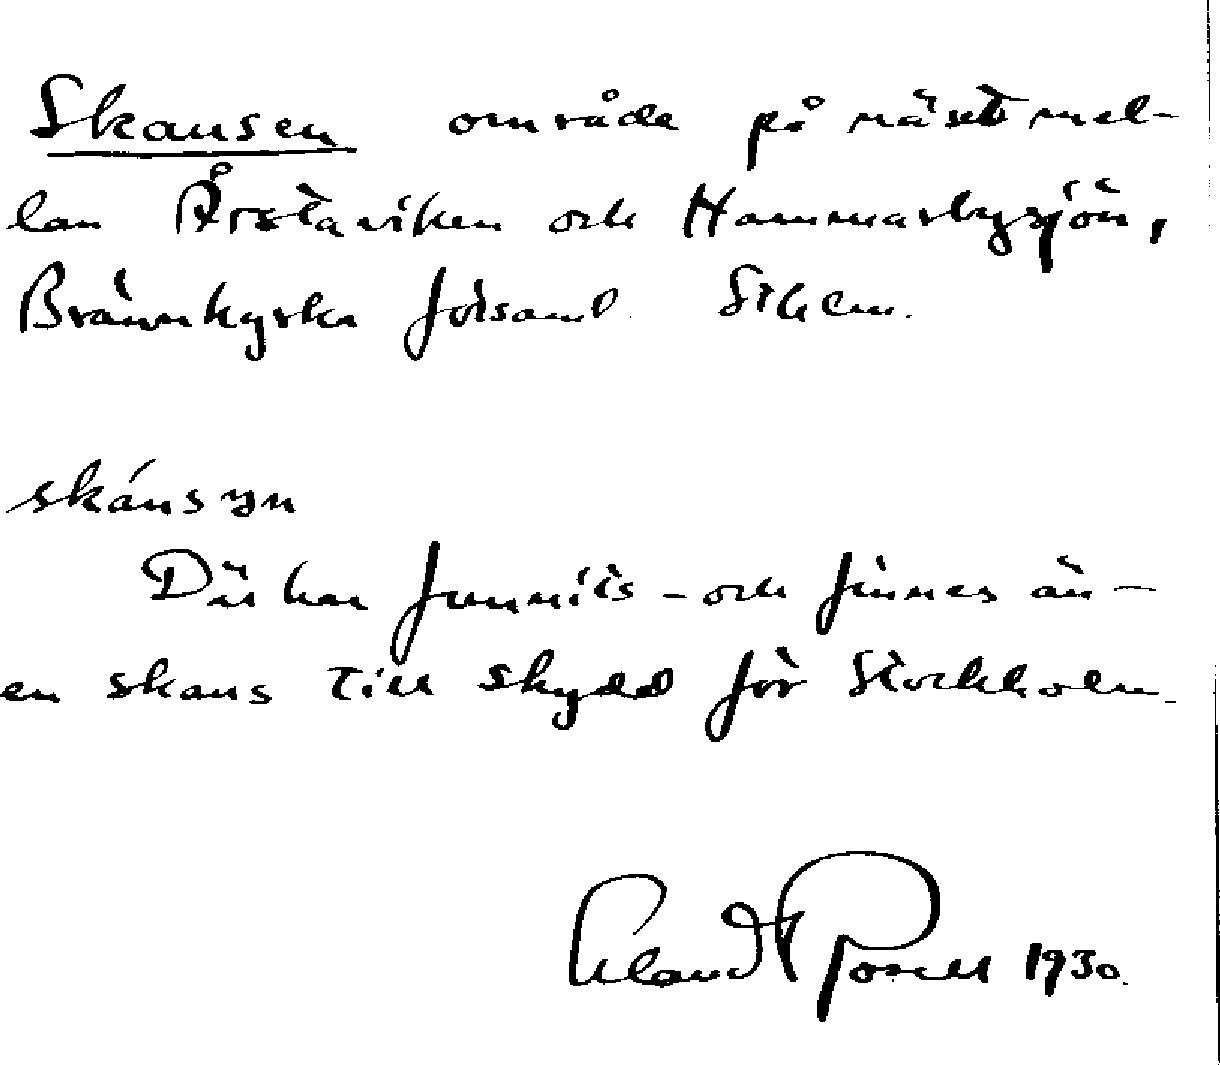 Skansen område på näset mel-
lan Årstaviken och Hammarbysjön,
Brännkyrka församl. Sthlm.
skánsyn
Där har funnits - och finnes än -
en skans till skydd för Stockholm.
Rosell 1930.